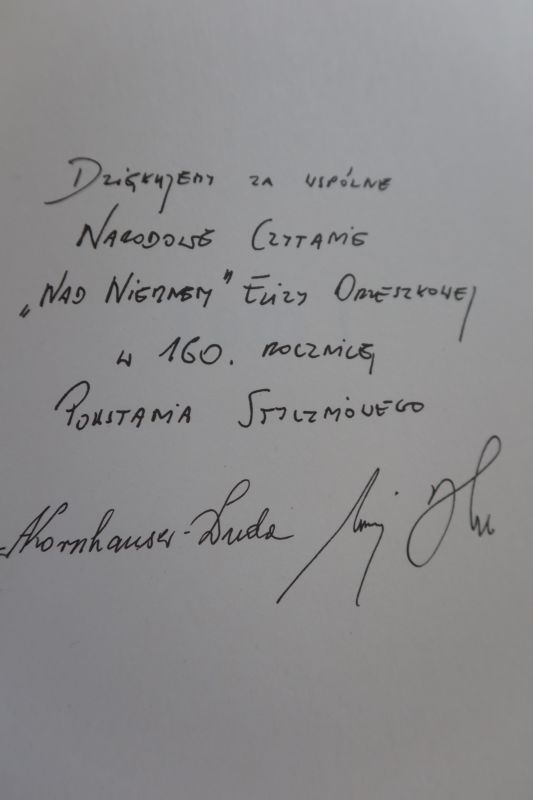 Dziękujemy za wspólne
Narodowe Czytanie
„Nad Niemnem" Elizy Orzeszkowej
w 160. rocznicę
Powstania Styczniowego
AKornhauser-Duda